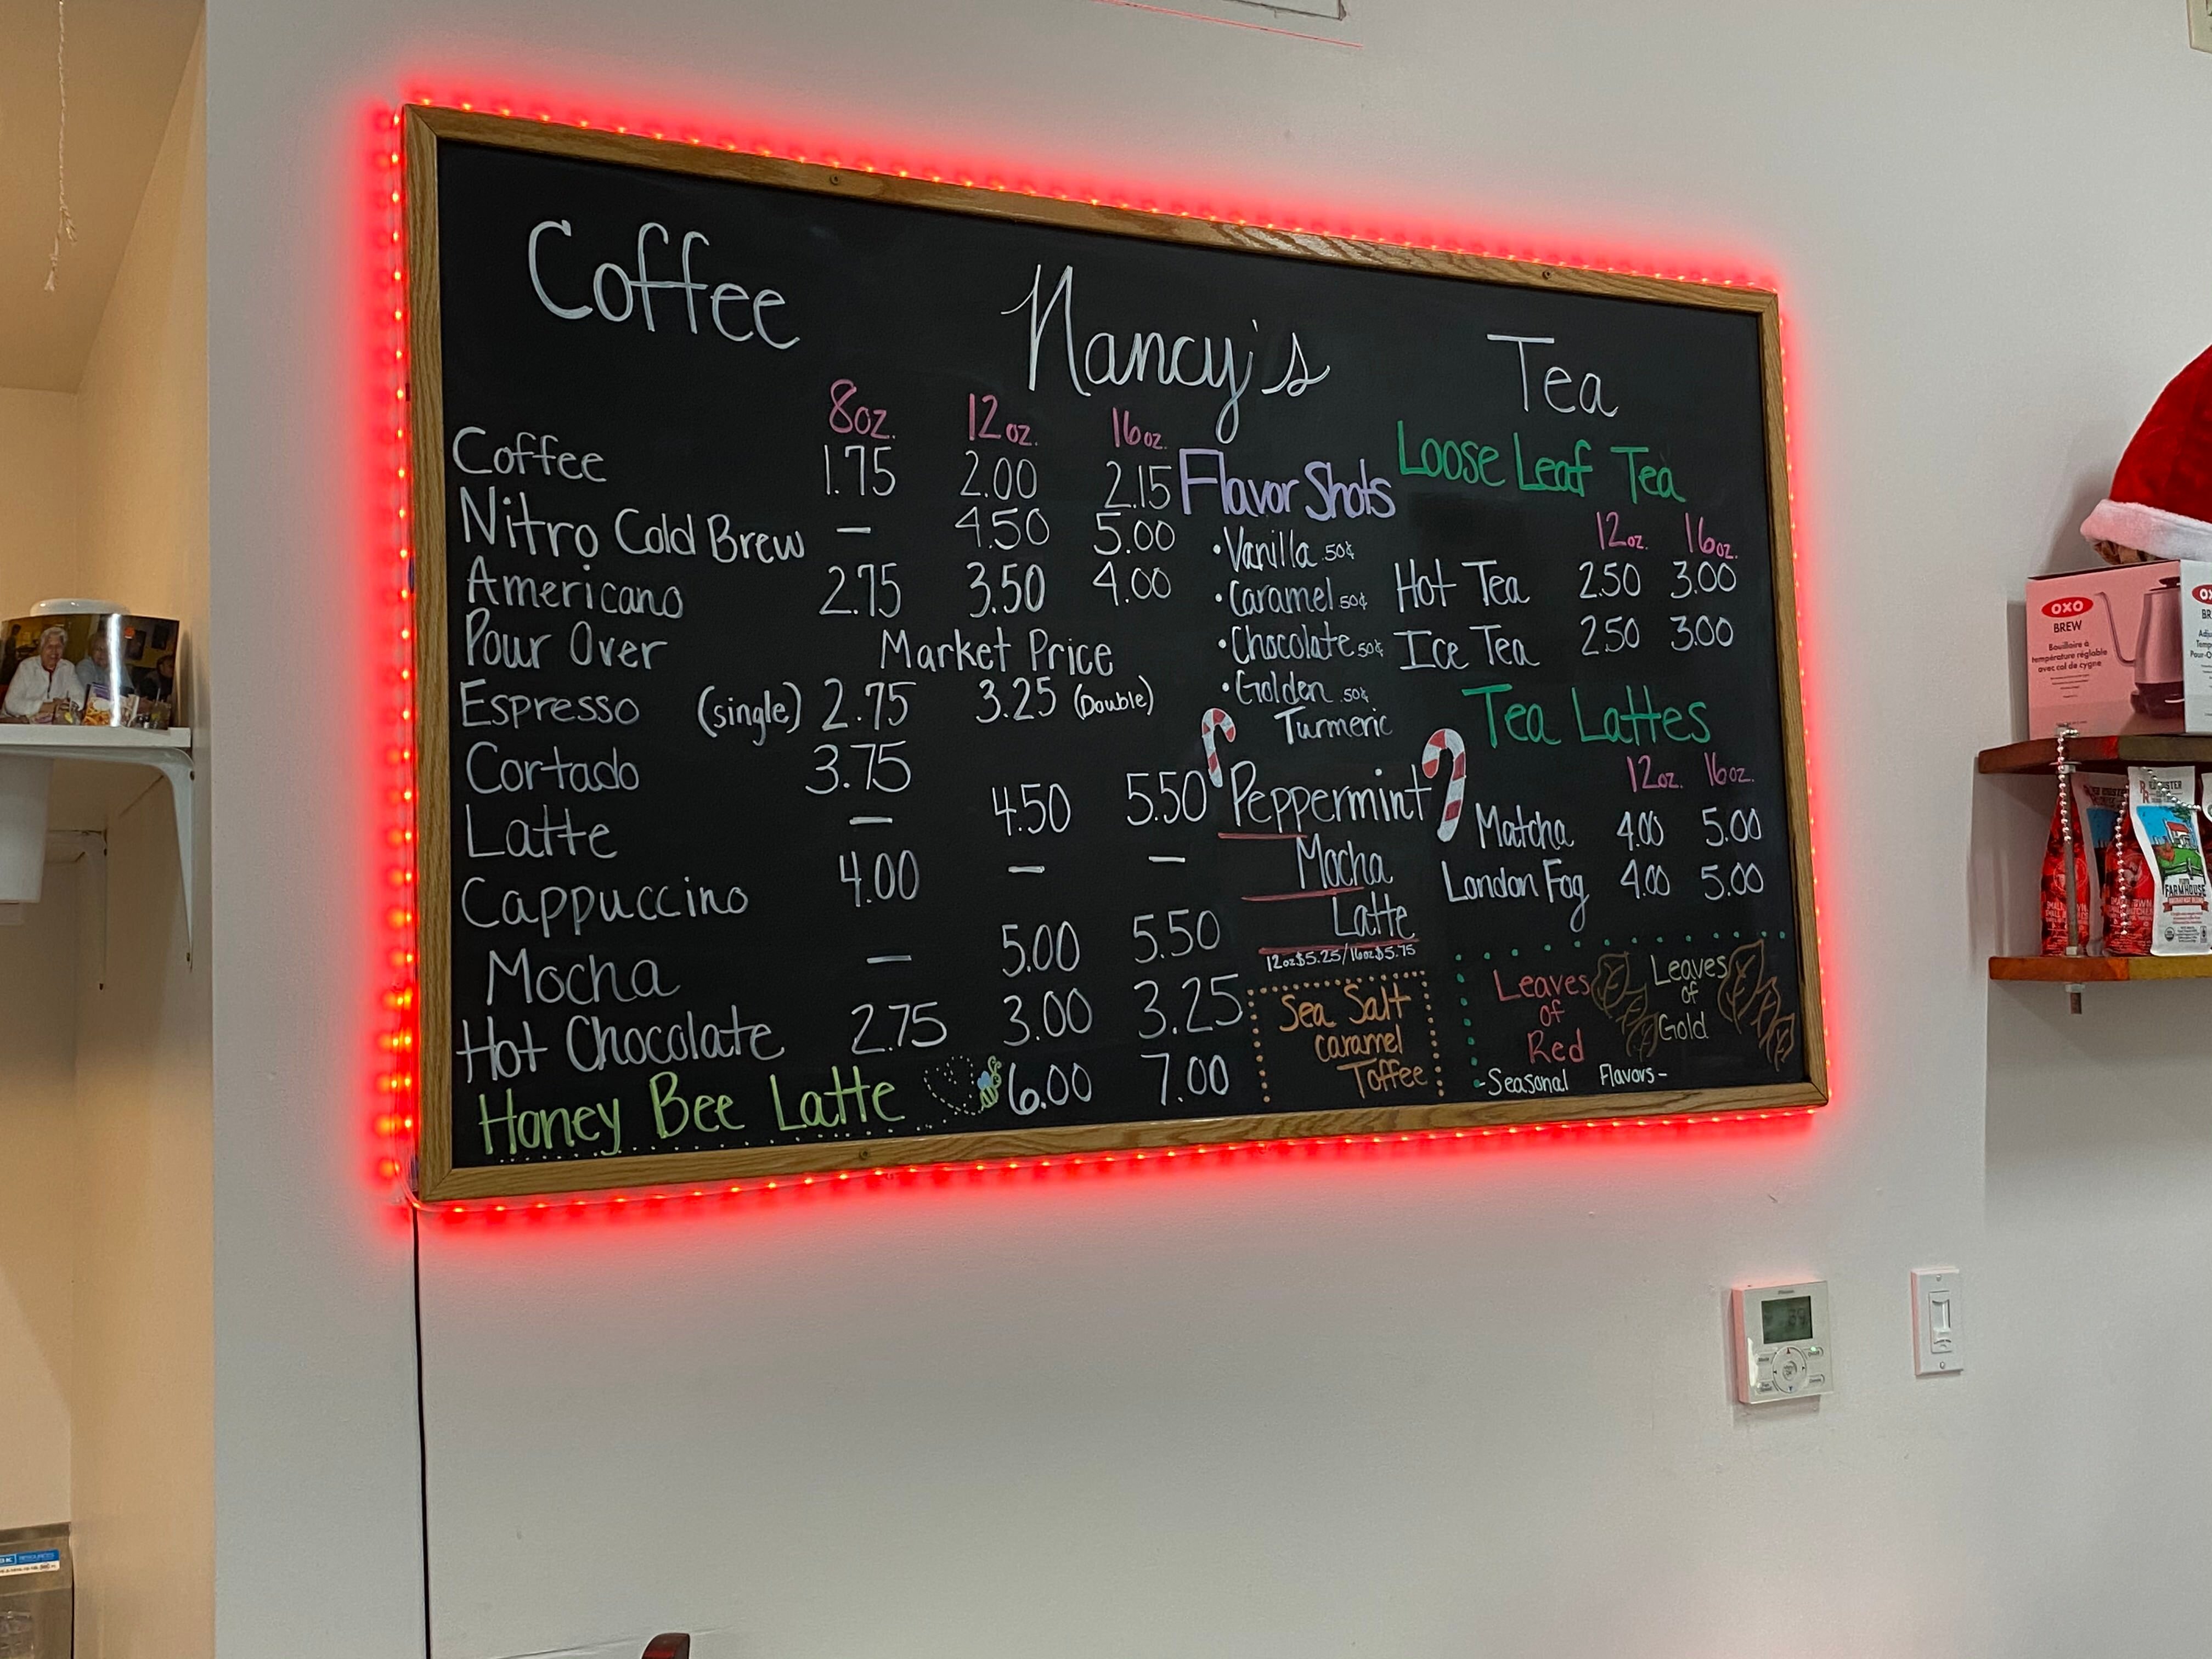 Coffee
Nancy's
Tea
8oz. 12oz. 16oz.
Coffee 1.75 2.00 2.15
Nitro Cold Brew — 4.50 5.00
Americano 2.75 3.50 4.00
Pour Over Market Price
Espresso (single) 2.75 3.25 (Double)
Cortado 3.75
Latte — 4.50 5.50
Cappuccino 4.00 — —
Mocha — 5.00 5.50
Hot Chocolate 2.75 3.00 3.25
Honey Bee Latte 6.00 7.00
Flavor Shots
•Vanilla .50¢
•Caramel .50¢
•Chocolate .50¢
•Golden .50¢
Turmeric
Peppermint
Mocha
Latte
12oz $5.25/16oz $5.75
Sea Salt
caramel
Toffee
Loose Leaf Tea
12oz. 16oz.
Hot Tea 2.50 3.00
Ice Tea 2.50 3.00
Tea Lattes
12oz. 16oz.
Matcha 4.00 5.00
London Fog 4.00 5.00
Leaves
of
Red
Leaves
of
Gold
-Seasonal Flavors-
OXO
BREW
Bouilloire à
température réglable
avec col de cygne
FARMHOUSE